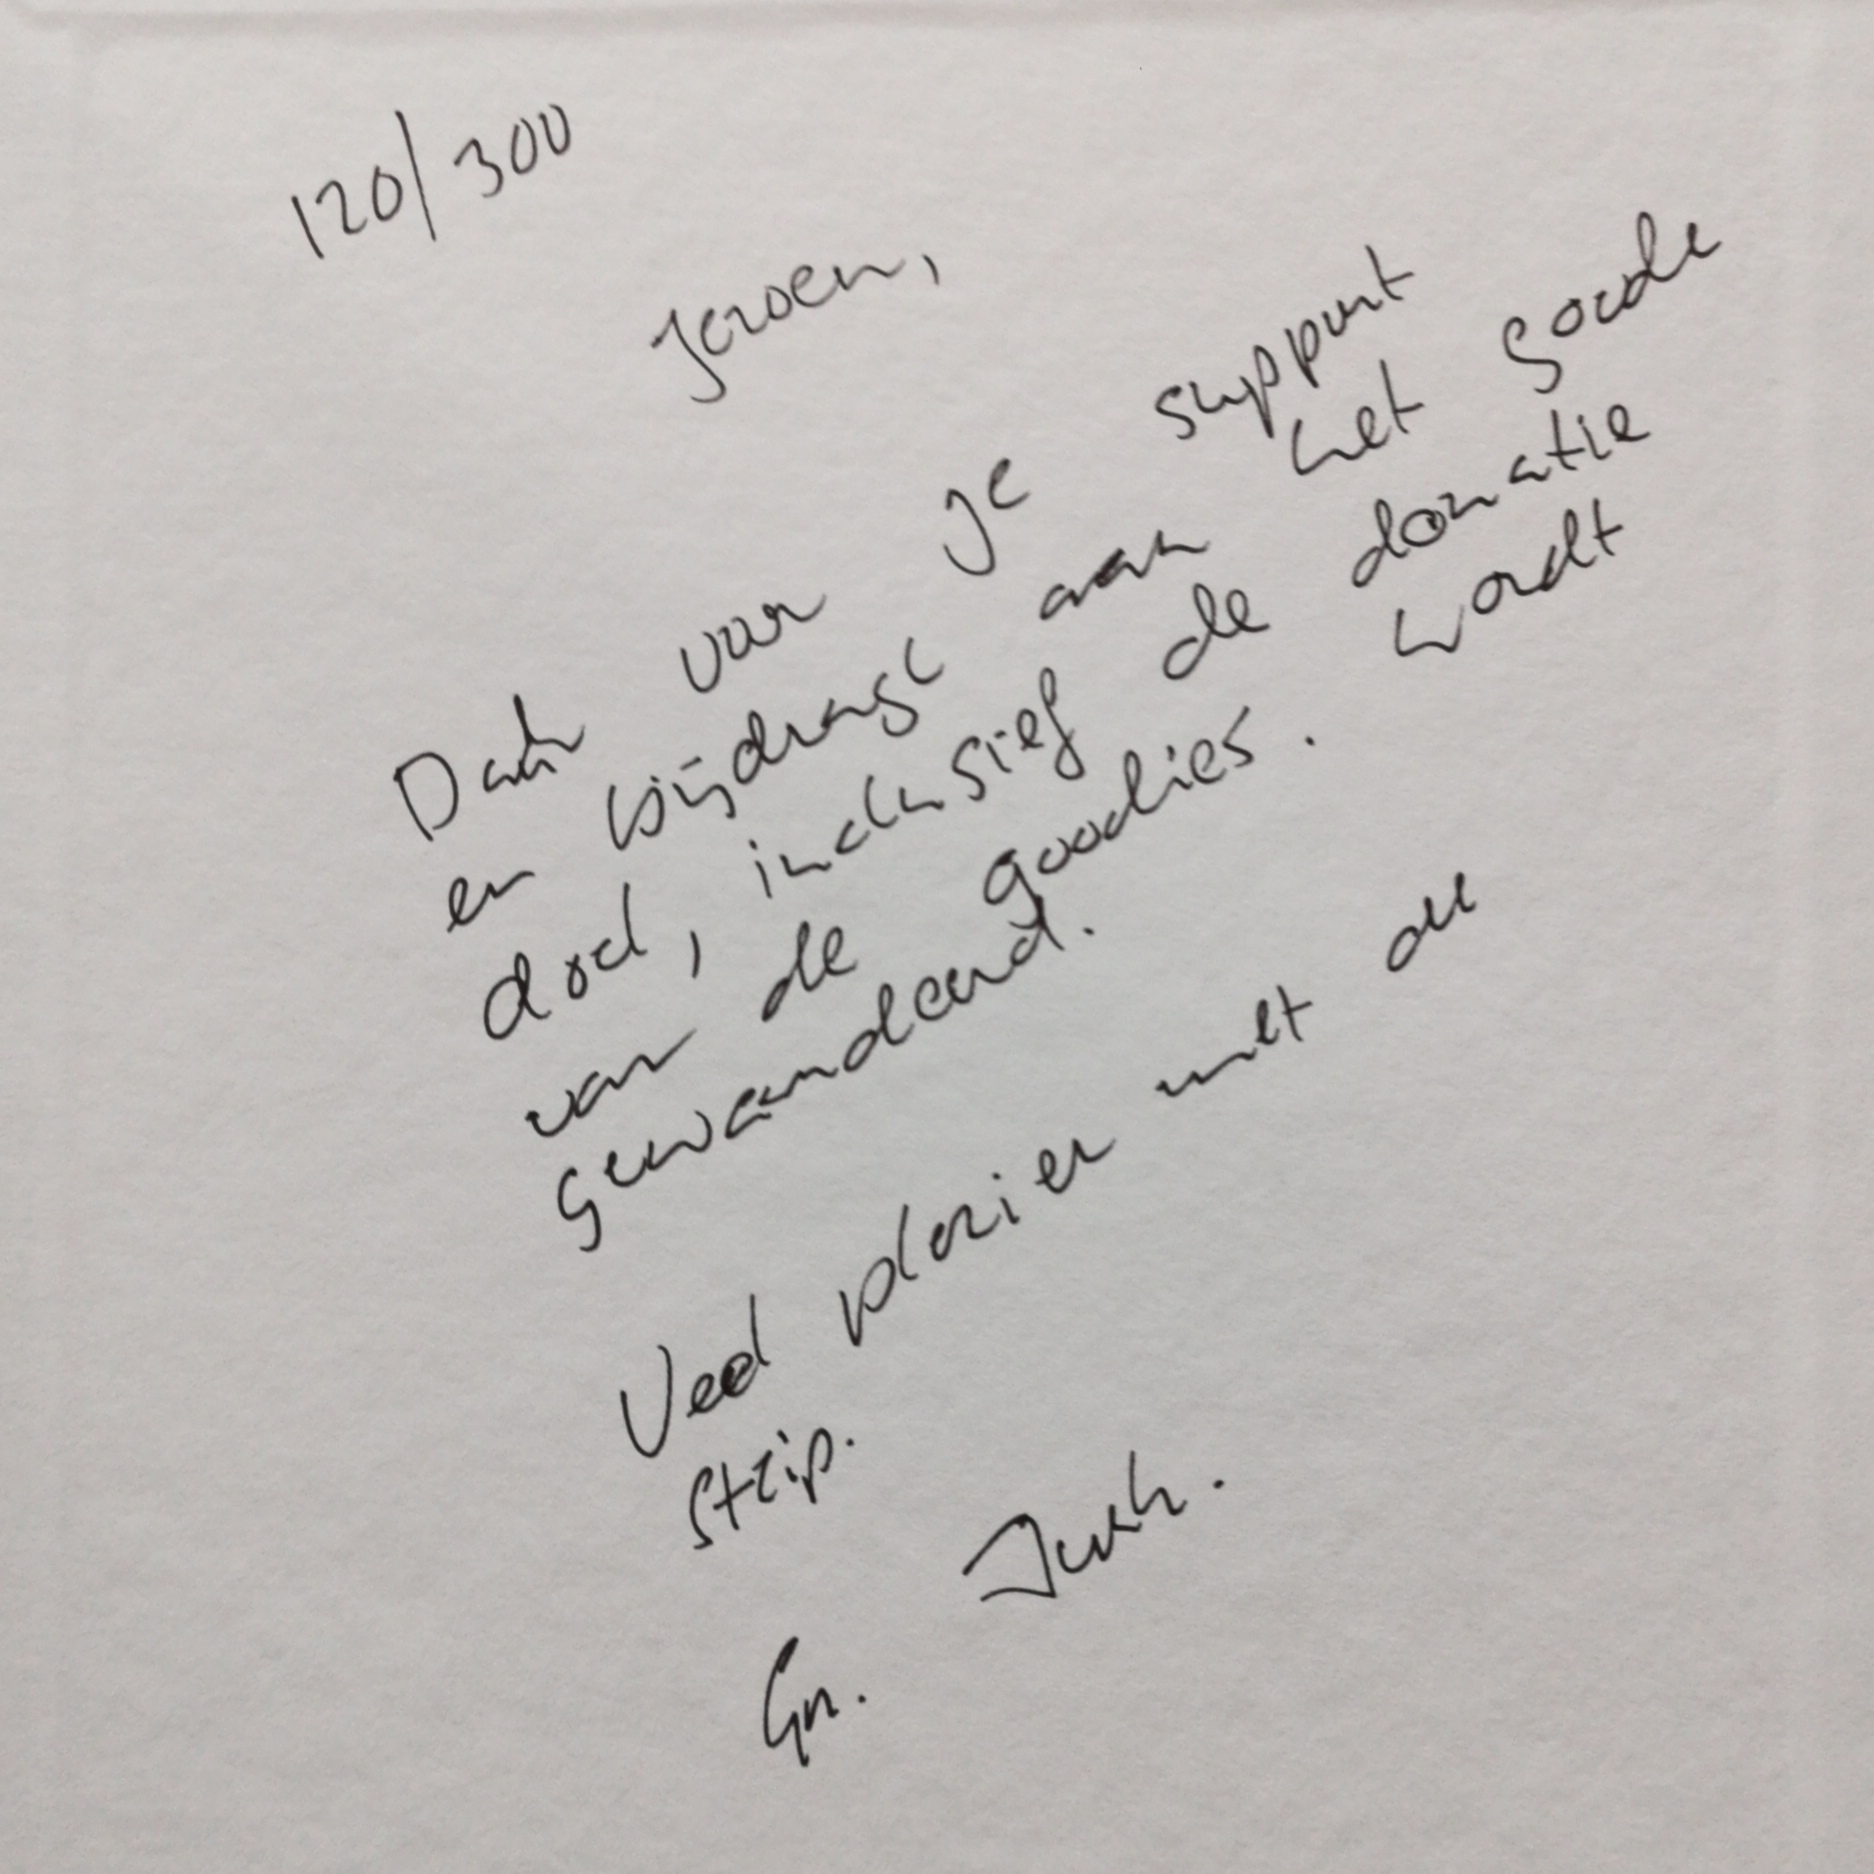 120/300
Jeroen,
Dank voor je support
en bijdrage aan het goede
doel, inclusief de donatie
van de goodies. wordt
gewaardeerd.
Veel plezier met de
strip.
Gr.